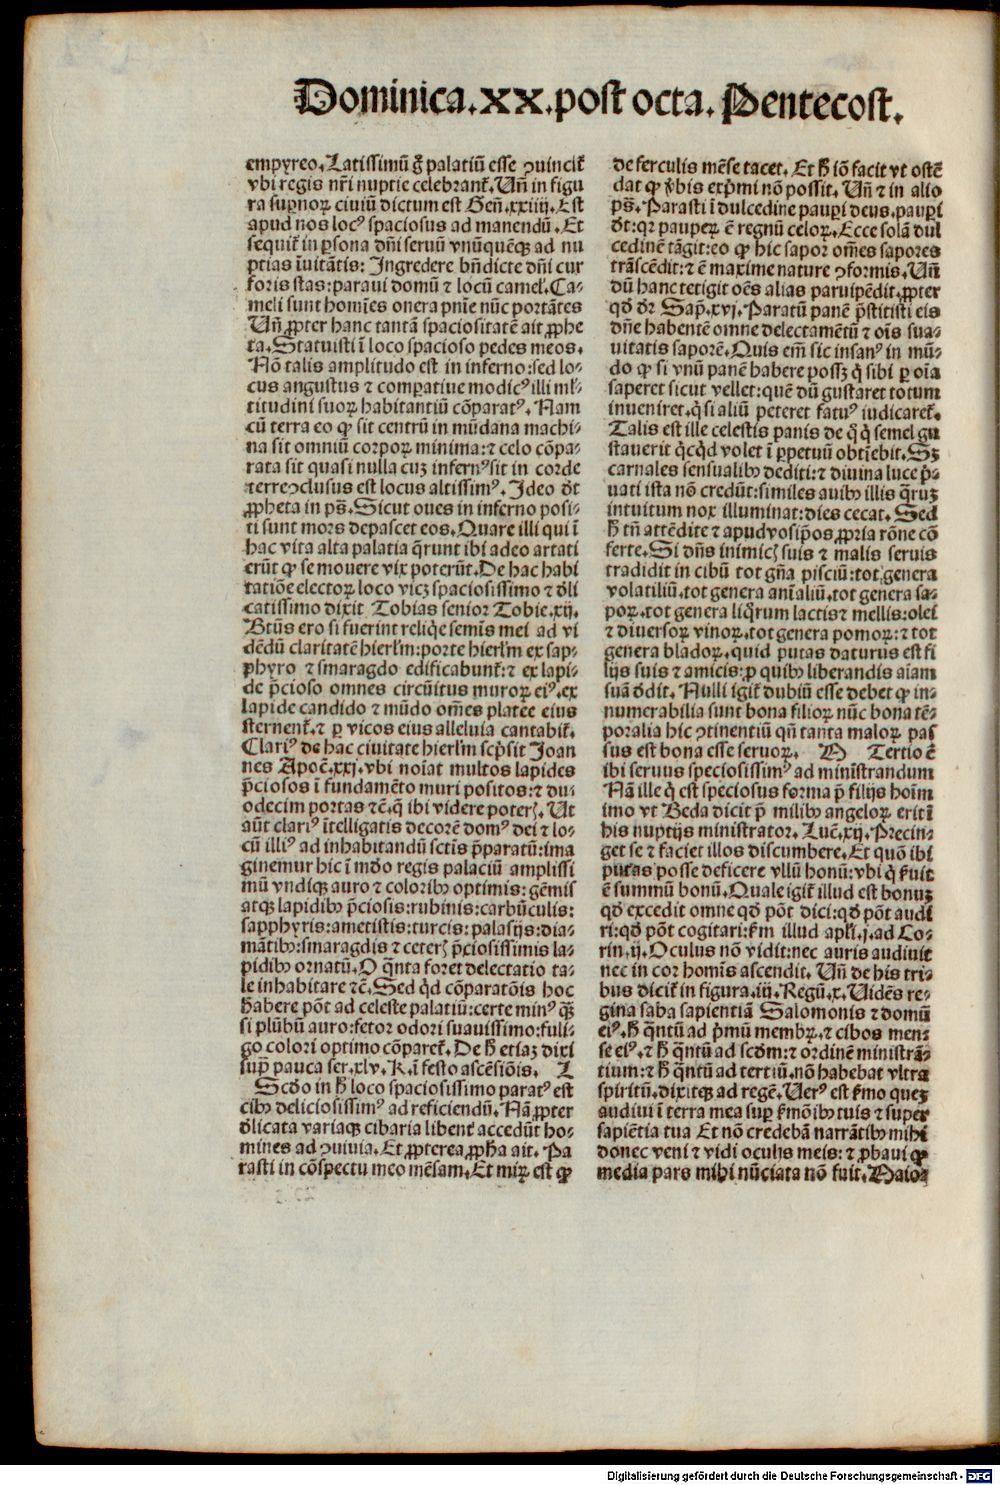 Dominica.XX.post octa.Pentecost.
empyreo.Latissimū g̊ palatiū esse ꝯuincit᷑
vbi regis nr̄i nuptie celebrant᷑.Vn̄ in figu
ra supnoꝝ ciuiū dictum est Gen̄.xxiiij.Est
apud nos locꝰ spaciosus ad manendū.Et
sequit᷑ in ꝑsona dn̄i seruū vnūquēqꝫ ad nu
ptias īuitātis: Ingredere bn̄dicte dn̄i cur
foris stas:paraui domū ⁊ locū camel̓.Ca⸗
meli sunt homīes onera pn̄ie nūc portātes
Vn̄ ꝓpter hanc tantā spaciositatē ait ꝓphe
ta.Statuisti ī loco spacioso pedes meos.
Nō talis amplitudo est in inferno:sed lo⸗
cus angustus ⁊ comꝑatiue modicꝰ illi ml̓⸗
titudini suoꝝ habitantiū cōparatꝰ.Nam
cū terra eo ꝙ sit centrū in mūdana machi⸗
na sit omniū corpoꝝ minima:⁊ celo cōpa⸗
rata sit quasi nulla cuꝫ infernꝰ sit in corde
terre ꝯclusus est locus altissimꝰ.Ideo dꝛ̄
ꝓpheta in ps̄.Sicut oues in inferno posi⸗
ti sunt mors depascet eos.Quare illi qui ī
hac vita alta palatia q̄runt ibi adeo artati
erūt ꝙ se mouere vix poterūt.De hac habi
tatiōe electoꝝ loco vicꝫ spaciosissimo ⁊ d̓li
catissimo dixit Tobias senior Tobie.xij.
Btūs ero si fuerint reliq̇e semīs mei ad vi
dēdū claritatē hierl̓m:porte hierl̓m ex sap⸗
phyro ⁊ smaragdo edificabunt᷑:⁊ ex lapi⸗
de p̄cioso omnes circūitus muroꝝ eiꝰ.ex
lapide candido ⁊ mūdo om̄es platee eius
sternent᷑.⁊ ꝑ vicos eius alleluia cantabit᷑.
Clariꝰ de hac ciuitate hierl̓m scp̓sit Joan
nes Apoc̄.xxj.vbi noīat multos lapides
p̄ciosos ī fundamēto muri positos:⁊ du⸗
odecim portas ⁊c̄.q̄ ibi videre poteris.Ut
aūt clariꝰ ītelligatis decorē domꝰ dei ⁊ lo⸗
cū illiꝰ ad inhabitandū sctīs p̄paratū:ima
ginemur hic ī mō regis palaciū amplissi
mū vndiqꝫ auro ⁊ coloribꝰ optimis:gēmis
atqꝫ lapidibꝰ p̄ciosis:rubinis:carbūculis:
sapphyris:ametistis:turcis:palasijs:dia⸗
mātibꝰ:smaragdis ⁊ ceteris p̄ciosissimis la⸗
pidibꝰ ornatū.O q̄nta foret delectatio ta⸗
le inhabitare ⁊c̄.Sed qd̓ cōparatōis hoc
habere pōt ad celeste palatiū:certe minꝰ q̄ꝫ
si plūbū auro:fetor odori suauissimo:fuli⸗
go colori optimo cōparet᷑.De h̄ etiaꝫ dixi
sup̄ pauca ser.xlv.K.ī festo ascēsiōis. L
Scd̓o in h̄ loco spaciosissimo paratꝰ est
cibꝰ deliciosissimꝰ ad reficiendū.Nā ꝓpter
d̓licata variaqꝫ cibaria libent᷑ accedūt ho⸗
mines ad ꝯuiuia.Et ꝓpterea ꝓph̄a ait.Pa
rasti in cōspectu meo mēsam.Et miꝝ est ꝙ
de ferculis mēse tacet.Et h̄ iō facit vt ostē
dat ꝙ v̓bis exp̓mi nō possit.Vn̄ ⁊ in alio
ps̄.Parasti ī dulcedine paupi deus.paupi
dꝛ̄:qꝛ paupeꝝ ē regnū celoꝝ.Ecce solā dul
cedinē tāgit:eo ꝙ hic sapor om̄es sapores
trāscēdit:⁊ ē maxime nature ꝯformis.Vn̄
dū hanc tetigit oēs alias paruipēdit.ꝓpter
qd̓ dꝛ̄ Sap̄.xvj.Paratū panē p̄stitisti eis
dn̄e habentē omne delectamētū ⁊ oīs sua⸗
uitatis saporē.Quis em̄ sic insanꝰ in mū⸗
do ꝙ si vnū panē habere possꝫ q̇ sibi ꝑ oīa
saperet sicut vellet:quē dū gustaret totum
inueniret.q̇ si aliū peteret fatuꝰ iudicaret᷑.
Talis est ille celestis panis de q̇ q̇ semel gu
stauerit qcqd̓ volet ī ꝑpetuū obtīebit.Sꝫ
carnales sensualibꝰ dediti:⁊ diuina luce p̓⸗
uati ista nō credūt:similes auibꝰ illis q̄ruꝫ
intuitum nox illuminat:dies cecat.Sed
h̄ tn̄ attēdite ⁊ apud vosip̄os ꝓpria rōne cō
ferte.Si dn̄s inimicis suis ⁊ malis seruis
tradidit in cibū tot gn̄a pisciū:tot genera
volatiliū.tot genera anīaliū.tot genera sa⸗
poꝝ.tot genera liq̄rum lactis ⁊ mellis:olei
⁊ diuersoꝝ vinoꝝ.tot genera pomoꝝ:⁊ tot
genera bladoꝝ.quid putas daturus est fi
lijs suis ⁊ amicis:ꝓ quibꝰ liberandis aīam
suā dedit.Nulli igit᷑ dubiū esse debet ꝙ in⸗
numerabilia sunt bona filioꝝ nūc bona tē⸗
poralia hic ꝯtinentiū qn̄ tanta maloꝝ pas
sus est bona esse seruoꝝ. M Tertio ē
ibi seruus speciosissimꝰ ad minīstrandum
Nā ille q̇ est speciosus forma p̄ filijs hoīm
imo vt Beda dicit p̄ milibꝰ angeloꝝ erit ī
his nuptijs ministrator.Luc̄.xij.Precin⸗
get se ⁊ faciet illos discumbere.Et quō ibi
putas posse deficere vllū bonū:vbi q̇ s̓uit
ē summū bonū.Quale igit᷑ illud est bonuꝫ
qd̓ excedit omne qd̓ pōt dici:qd̓ pōt audi
ri:qd̓ pōt cogitari:s̓m illud apl̓i.j.ad Co⸗
rin.ij.Oculus nō vidit:nec auris audiuit
nec in cor homīs ascendit.Vn̄ de his tri⸗
bus dicit᷑ in figura.iij.Regū.x.Uidēs re⸗
gina saba sapientiā Salomonis ⁊ domū
eiꝰ.h̄ q̄ntū ad p̓mū membꝝ.⁊ cibos men⸗
se eiꝰ.⁊ h̄ q̄ntū ad scd̓m:⁊ ordinē ministrā⸗
tium:⁊ h̄ q̄ntū ad tertiū.nō habebat vltra
spiritū.dixitqꝫ ad regē.Uerꝰ est s̓mo queꝫ
audiui ī terra mea sup s̓mōibꝰ tuis ⁊ super
sapiētia tua Et nō credebā narrātibꝰ mihi
donec veni ⁊ vidi oculis meis:⁊ ꝓbaui ꝙ
media pars mihi nūciata nō fuit.Maioꝛ
Digitalisierung gefördert durch die Deutsche Forschungsgemeinschaft - DFG